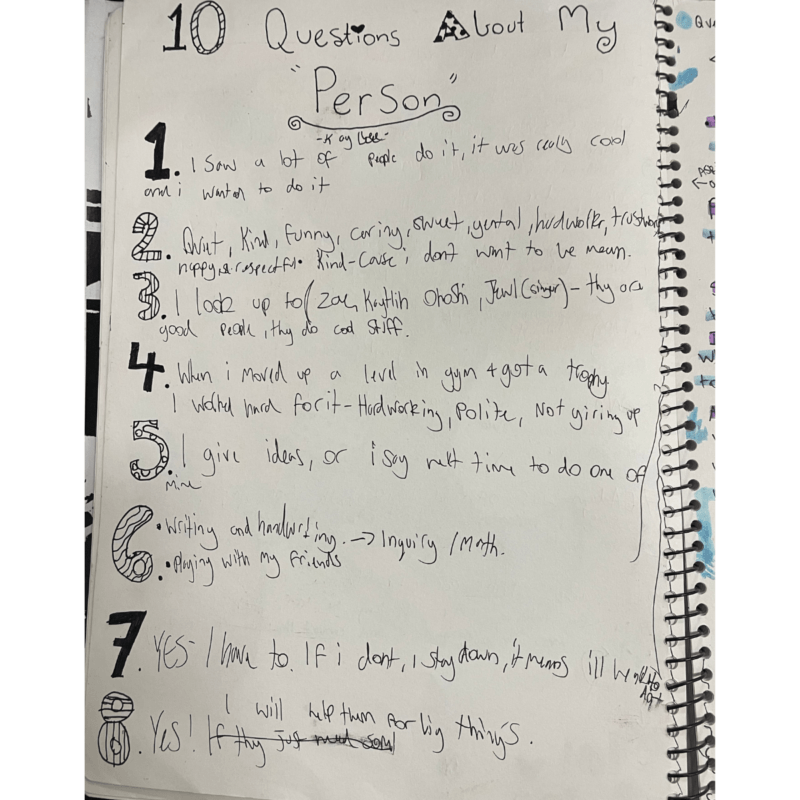 10 Questions About My
"Person"
1. I saw a lot of people do it, it was really cool
and i wanted to do it
2. Quiet, Kind, funny, caring, sweet, gental, hardworker,
happy, & respectful. Kind-Cause i dont want to be mean.
3. I look up to (Zoe, Kaytlin Ohoshi, Jewl (singer) - thy are
good people, thy do cool stuff.
4. When i moved up a level in gym & got a trophy
I worked hard for it - Hardworking, Polite, Not giving up
5. I give ideas, or i say next time to do one of
Mine
6. • Writing and handwriting. -> Inquiry / Math.
• Playing with My Friends
7. YES - I have to. If i dont, i stay down, it means ill be
I will help them for big things.
8. Yes! If thy just need som